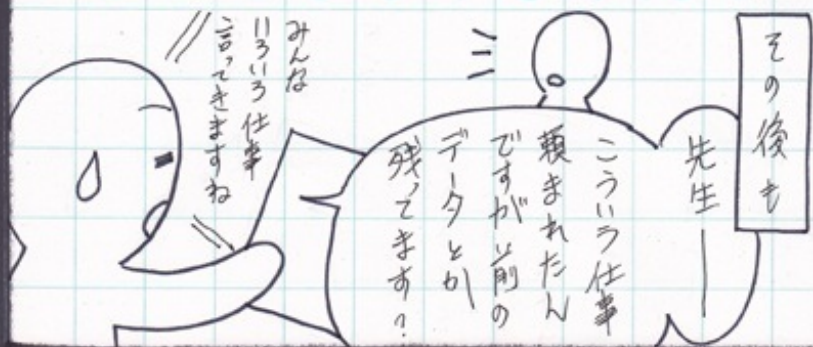 その後も
先生―
こういう仕事
頼まれたん
ですが以前の
データとか
残ってます?
みんな
いろいろ仕事
言ってきますね